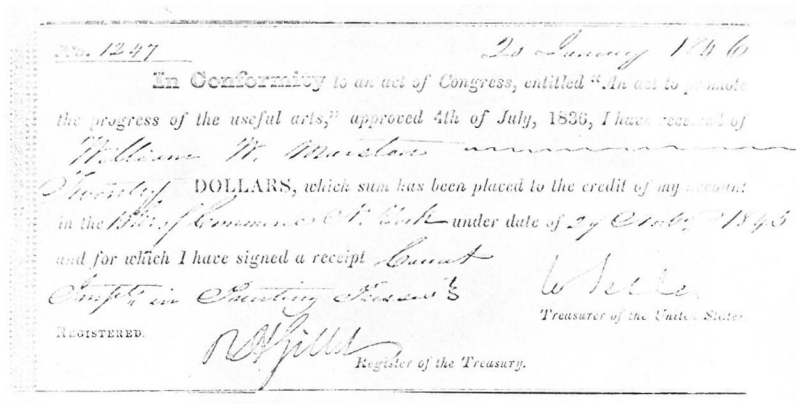 No. 1247 20 January 1846
In Conformity to an act of Congress, entitled "An act to promote
the progress of the useful arts," approved 4th of July, 1836, I have received of
William W. Marston
Twenty DOLLARS, which sum has been placed to the credit of my account
in the Bk of Commerce N. York under date of 29 1845
and for which I have signed a receipt
in
Treasurer of the United States.
REGISTERED.
R H Gillet
Register of the Treasury.